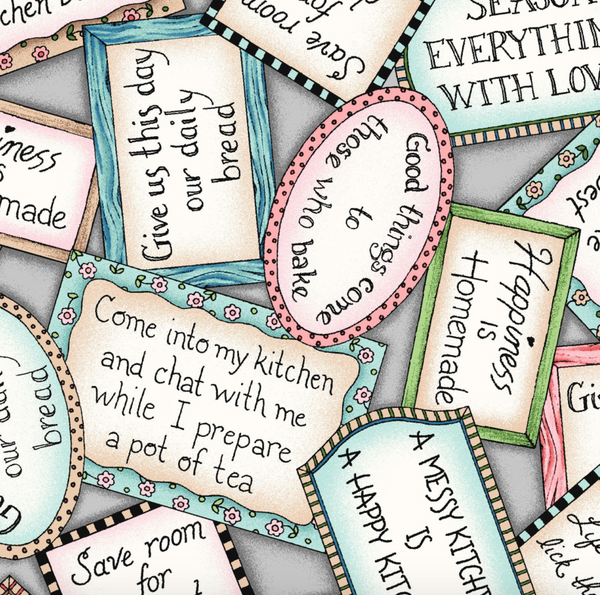 chen
Save room
for
SEASON
EVERYTHIN
WITH LOV
Give us this day
our daily
bread
iness
is
made
Good things come
to
those who bake
Happiness
is
Homemade
Come into my kitchen
and chat with me
while I prepare
a pot of tea
our daily
bread
Gi
A MESSY KITCH
IS
A HAPPY KITC
Save room
for
lick th